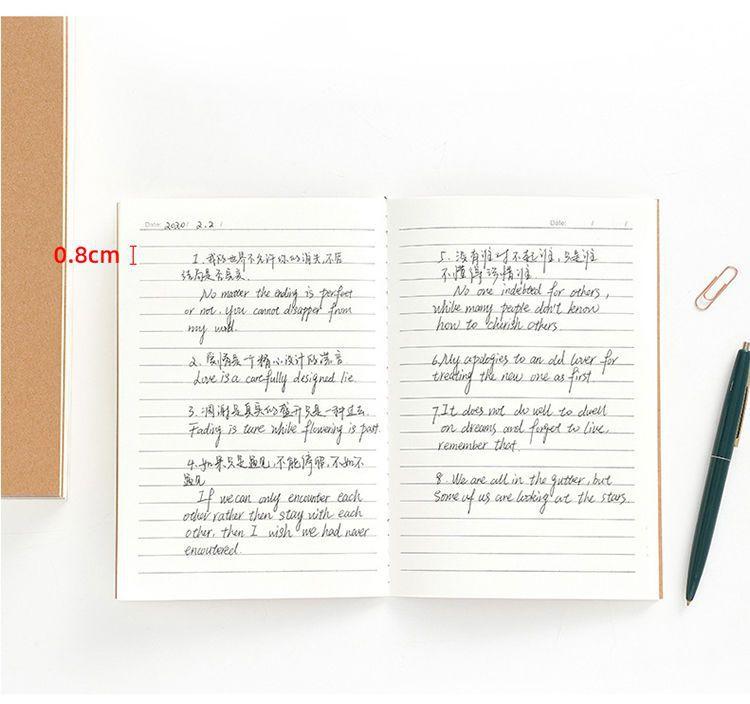 Date: 2020 / 2.2 /
0.8cm
1. 我的世界不允许你的消失,不管
结局是否完美.
No matter the ending is perfect
or not, you cannot disapper from
my world.
2. 爱情是一个精心设计的谎言
Love is a carefully designed lie.
3. 凋谢是真实的盛开只是一种过去.
Fading is ture while flowering is past
4. 如果只是遇见,不能停留,不如不
遇见
If we can only encounter each
other rather then stay with each
other, then I wish we had never
encoutered.
Date: / /
5. 没有谁对不起谁,只是谁
不懂得珍惜谁.
No one indebted for others,
while many people don't know
how to cherish others.
6. My apologies to an old lover for
treating the new one as first.
7. It does not do well to dwell
on dreams and forget to live,
remember that.
8. We are all in the gutter, but
some of us are looking at the stars.